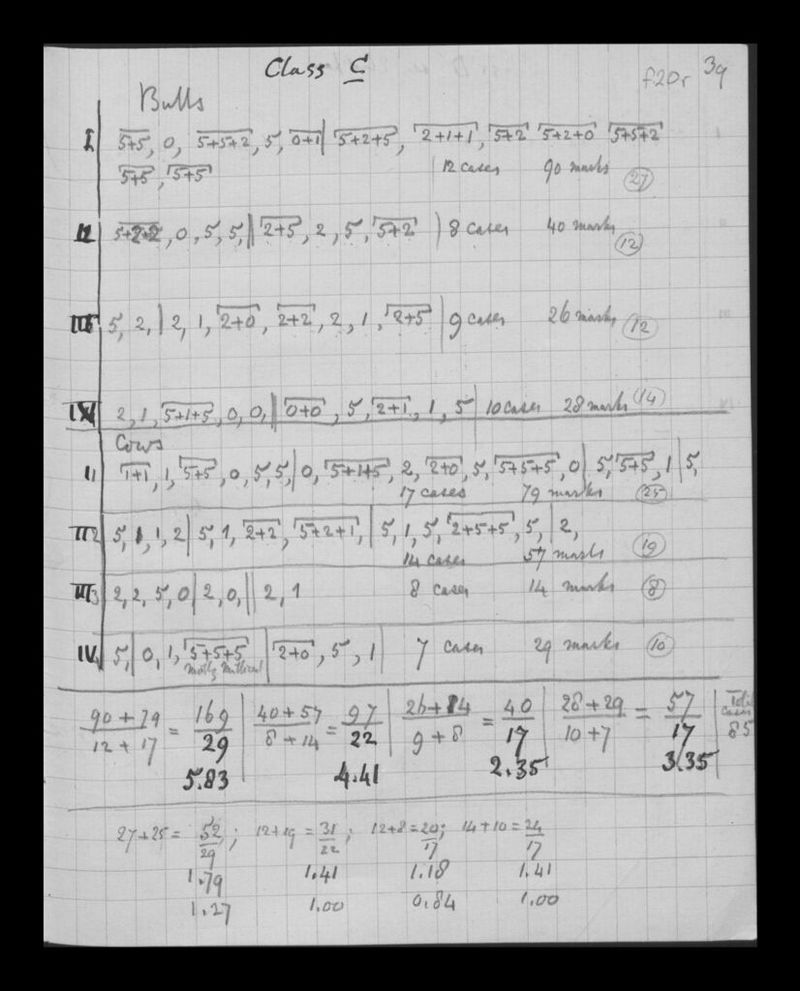 Class C
f20r 39
Bulls
I 5+5, 0, 5+5+2, 5, 0+1| 5+2+5, 2+1+1, 5+2 5+2+0 5+5+2
5+5, 5+5 12 cases 90 marks 27
II 5+2+2, 0, 5, 5,| 2+5, 2, 5, 5+2 | 8 cases 40 marks 12
III 5, 2,| 2, 1, 2+0, 2+2, 2, 1, 2+5 | 9 cases 26 marks 12
IV 2, 1, 5+1+5, 0, 0,| 0+0, 5, 2+1, 1, 5| 10 cases 28 marks 14
Cows
1+1, 1, 5+5, 0, 5, 5,| 0, 5+1+5, 2, 2+0, 5, 5+5+5, 0| 5, 5+5, 1| 5,
17 cases 79 marks 25
II 2 5, 1, 1, 2| 5, 1, 2+2, 5+2+1,| 5, 1, 5, 2+5+5, 5,| 2,
14 cases 57 marks 19
III 3 2, 2, 5, 0| 2, 0,|| 2, 1 8 cases 14 marks 8
IV 5,| 0, 1, 5+5+5 | 2+0, 5, 1| 7 cases 29 marks 10
90+79 / 12+17 = 169 / 29 | 40+57 / 8+14 = 97 / 22 | 26+14 / 9+8 = 40 / 17 | 28+29 / 10+7 = 57 / 17 | Total cases 85
5.83 4.41 2.35 3.35
27+25 = 52/29; 12+19 = 31/22; 12+8=20/17; 14+10=24/17
1.79 1.41 1.18 1.41
1.27 1.00 0.84 1.00